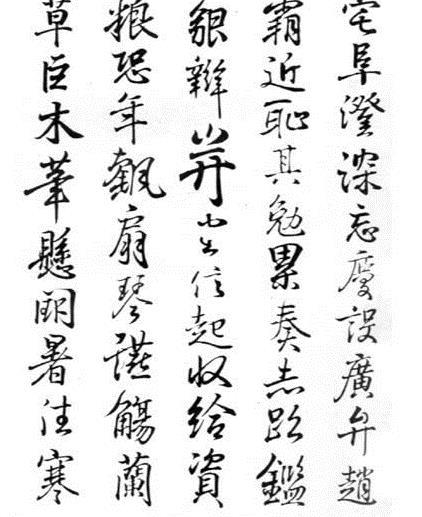 宅阜澄深忘慶設廣弁趙
霸近恥其勉累奏赤跡鑑
貌辨并信起收給資
糧恐年飄扇琴謹觴蘭
草巨木華懸朗暑往寒